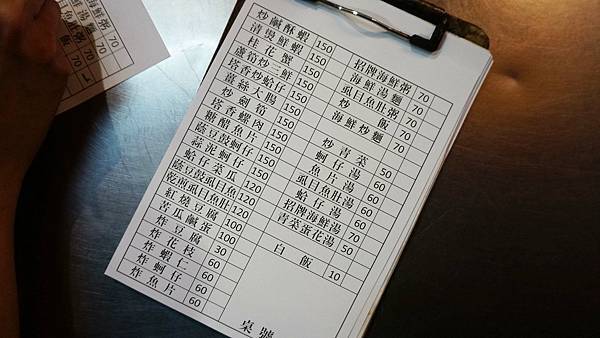 炒鹹酥蝦 150
清燙鮮蝦 150
桂花蟹 150
蘆筍炒三鮮 150
塔香炒蛤仔 150
薑絲大腸 150
炒劍筍 150
塔香螺肉 150
糖醋魚片 150
蔭豆豉蚵仔 150
蒜泥蚵仔 150
蛤仔菜瓜 120
蔭豆豉虱目魚 120
乾煎虱目魚肚 120
紅燒豆腐 100
苦瓜鹹蛋 100
炸豆腐 30
炸花枝 60
炸蝦仁 60
炸蚵仔 60
炸魚片 60
招牌海鮮粥 70
海鮮湯麵 70
虱目魚肚粥 70
炒飯 70
海鮮炒麵 70
炒青菜 50
蚵仔湯 60
魚片湯 60
虱目魚肚湯 60
蛤仔湯 60
招牌海鮮湯 70
青菜蛋花湯 50
白飯 10
桌號